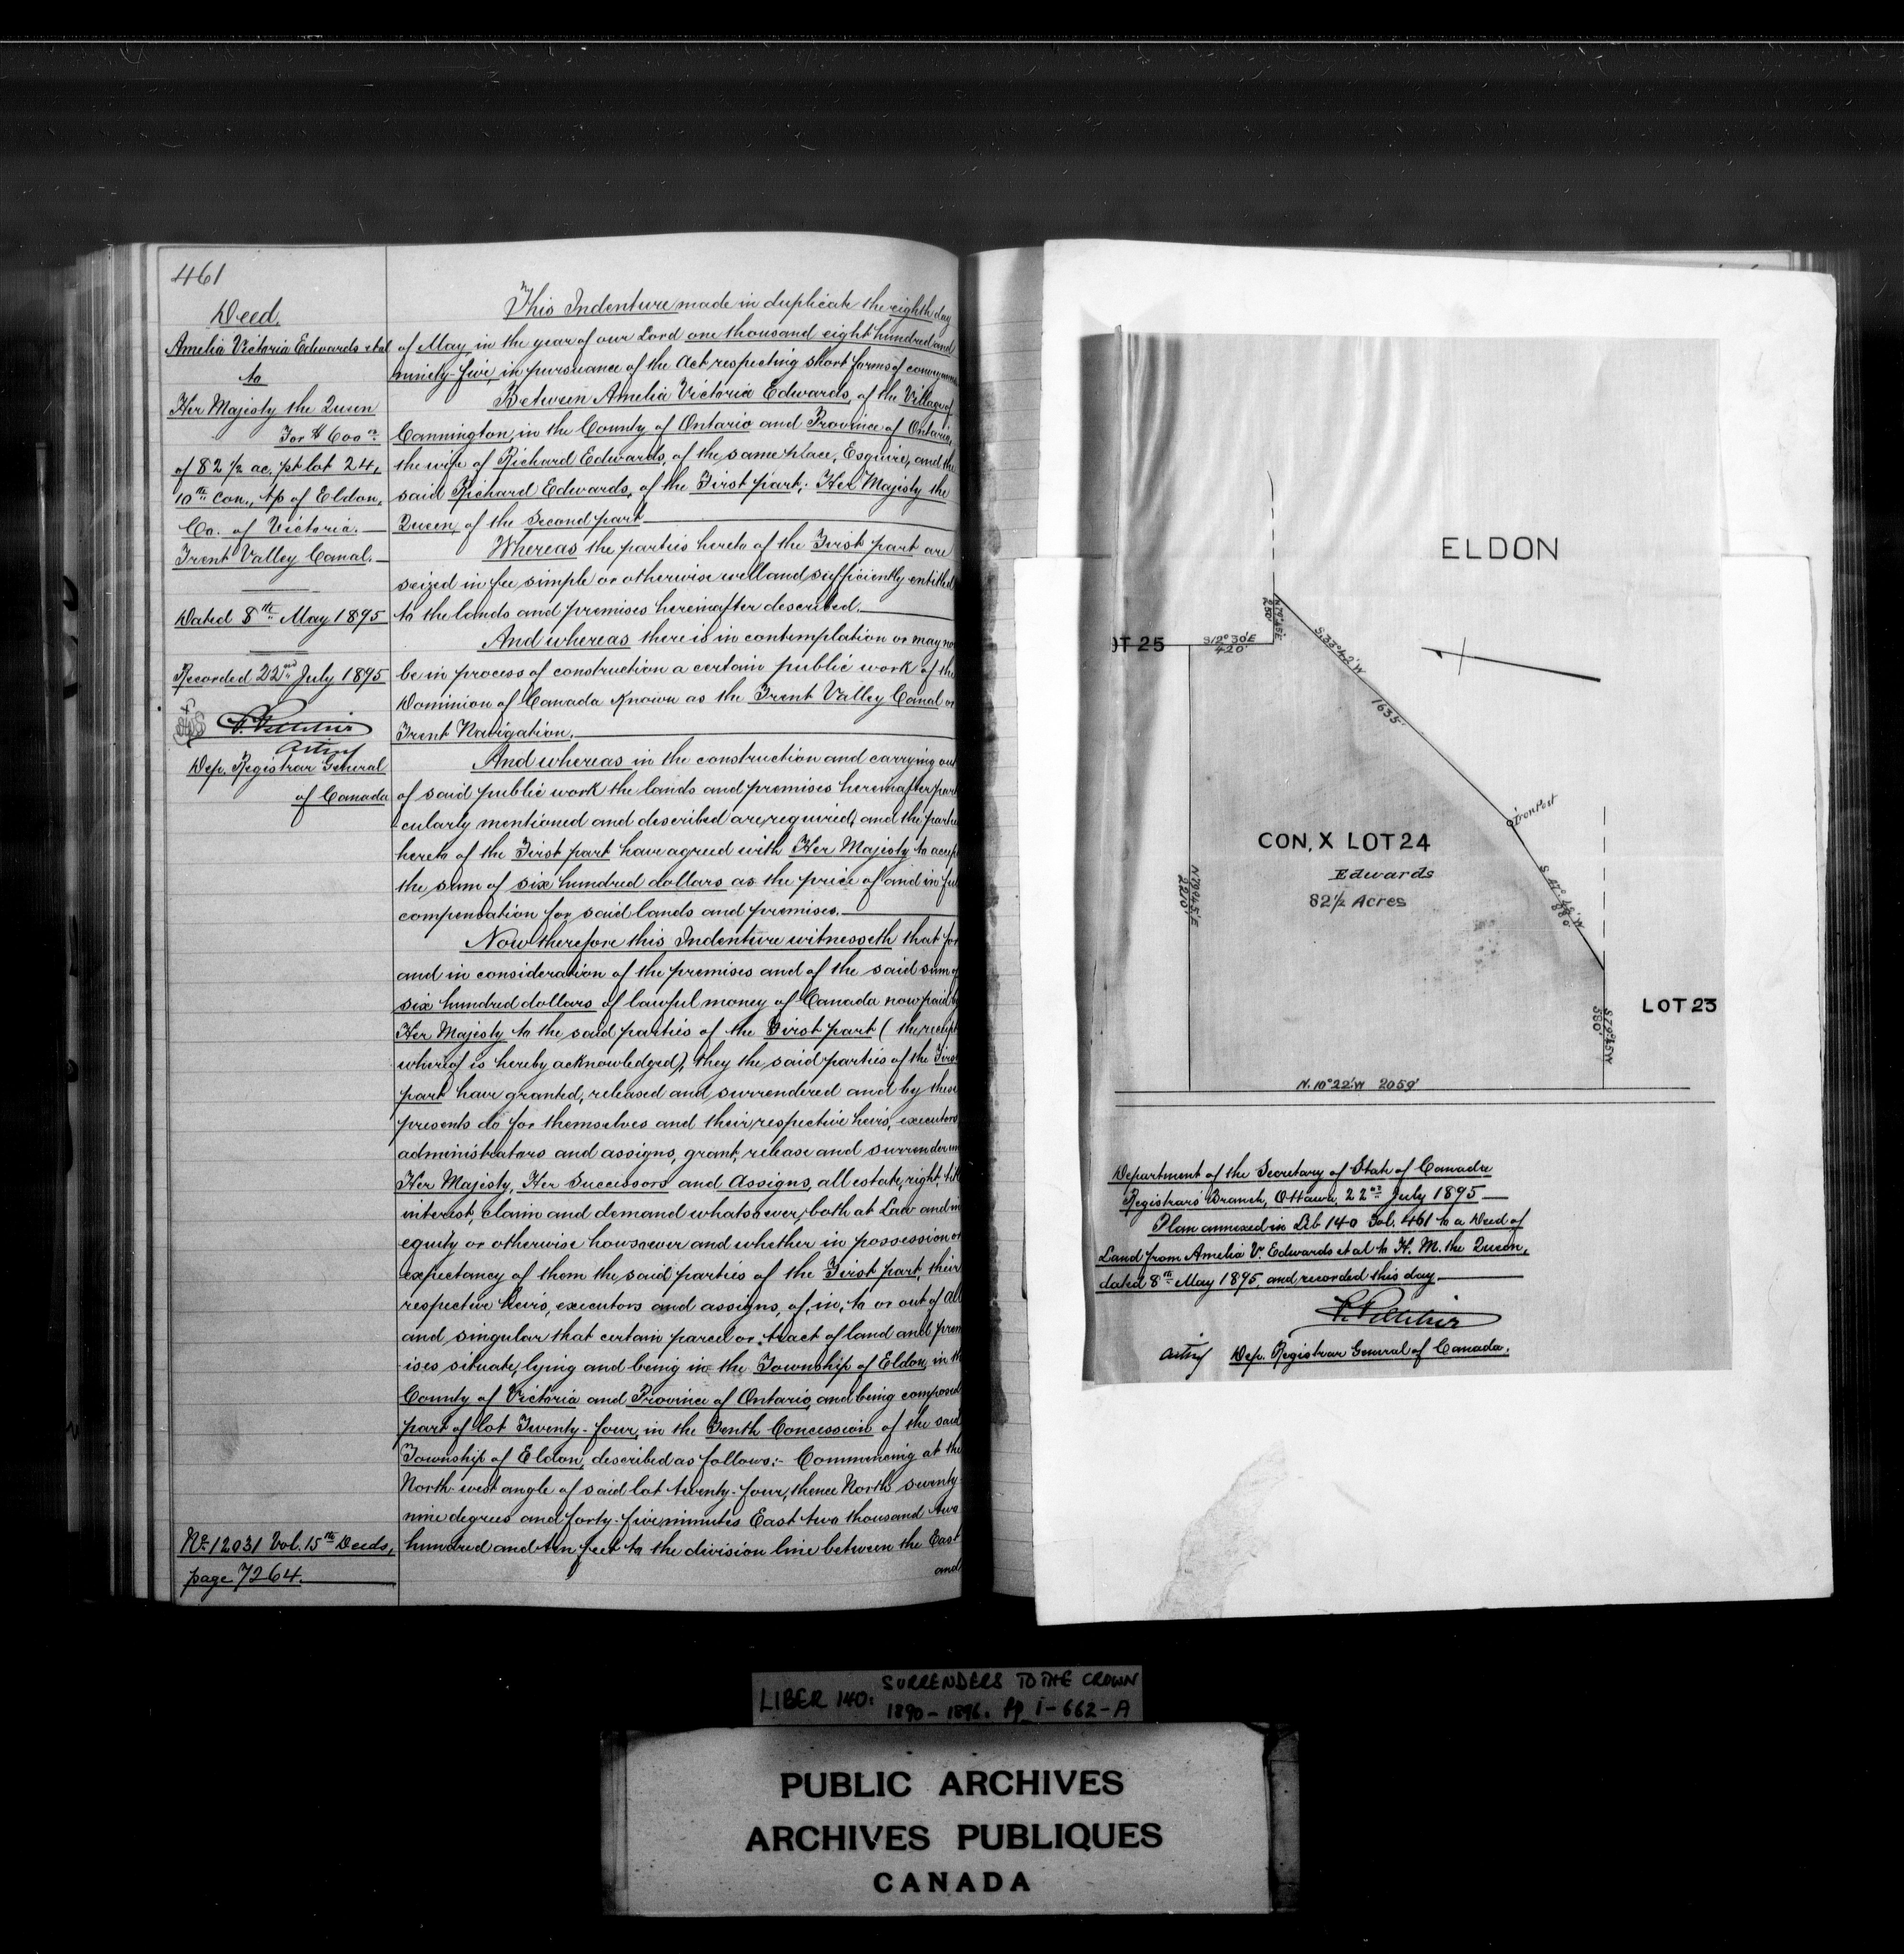 461
Deed.
Amelia Victoria Edwards et al
to
Her Majesty the Queen
For $600 00
of 82 1/2 ac. pt lot 24,
10th Con., Tp of Eldon,
Co. of Victoria.
Trent Valley Canal.
Dated 8th May 1895
Recorded 22nd July 1895
Acting
Dep. Registrar General
of Canada
No 12031 Vol. 15th Deeds,
page 7264.
This Indenture made in duplicate the eighth day
of May, in the year of our Lord one thousand eight hundred and
ninety-five, in pursuance of the Act respecting short forms of
Between Amelia Victoria Edwards, of the Village of
Cannington, in the County of Ontario and Province of Ontario,
the wife of Richard Edwards, of the same place, Esquire, and the
said Richard Edwards, of the First part; Her Majesty the
Queen, of the Second part
Whereas the parties hereto of the First part are
seized in fee simple or otherwise well and sufficiently entitled
to the lands and premises hereinafter described.
And whereas there is in contemplation or may
be in process of construction a certain public work of the
Dominion of Canada known as the Trent Valley Canal or
Trent Navigation.
And whereas in the construction and carrying out
of said public work the lands and premises hereinafter parti
cularly mentioned and described are required, and the parties
hereto of the First part have agreed with Her Majesty to accept
the sum of six hundred dollars as the price of and in full
compensation for said lands and premises.
Now therefore this Indenture witnesseth that for
and in consideration of the premises and of the said sum of
six hundred dollars of lawful money of Canada now paid by
Her Majesty to the said parties of the First part (the receipt
whereof is hereby acknowledged), they the said parties of the First
part have granted, released and surrendered and by these
presents do for themselves and their respective heirs, executors
administrators and assigns, grant, release and surrender
Her Majesty, Her Successors and Assigns, all estate, right, title
interest, claim and demand whatsoever, both at Law and in
equity or otherwise howsoever and whether in possession or
expectancy of them the said parties of the First part, their
respective heirs, executors and assigns, of, in, to or out of all
and singular that certain parcel or tract of land and prem
ises situate, lying and being in the Township of Eldon, in the
County of Victoria and Province of Ontario, and being composed
part of lot Twenty-four, in the Tenth Concession of the said
Township of Eldon, described as follows:- Commencing at the
North-west angle of said lot twenty-four, thence North seventy
nine degrees and forty-five minutes East two thousand two
hundred and ten feet to the division line between the East
and
ELDON
OT 25
S12°30'E
420'
N79°45'E
S.33°42'W
1635'
Iron Post
CON. X LOT 24
Edwards
82 1/2 Acres
N79°45'E
2210'
880'
LOT 23
S79°45'W
380'
N. 10°22'W 2059'
Department of the Secretary of State of Canada
Registrar's Branch, Ottawa, 22nd July 1895
Plan annexed in Lib 140 Fol. 461 to a Deed of
Land from Amelia V. Edwards et al to H. M. the Queen,
dated 8th May 1895, and recorded this day
Acting Dep. Registrar General of Canada.
LIBER 140: SURRENDERS TO THE CROWN
1890-1896. pp i-662-A
PUBLIC ARCHIVES
ARCHIVES PUBLIQUES
CANADA